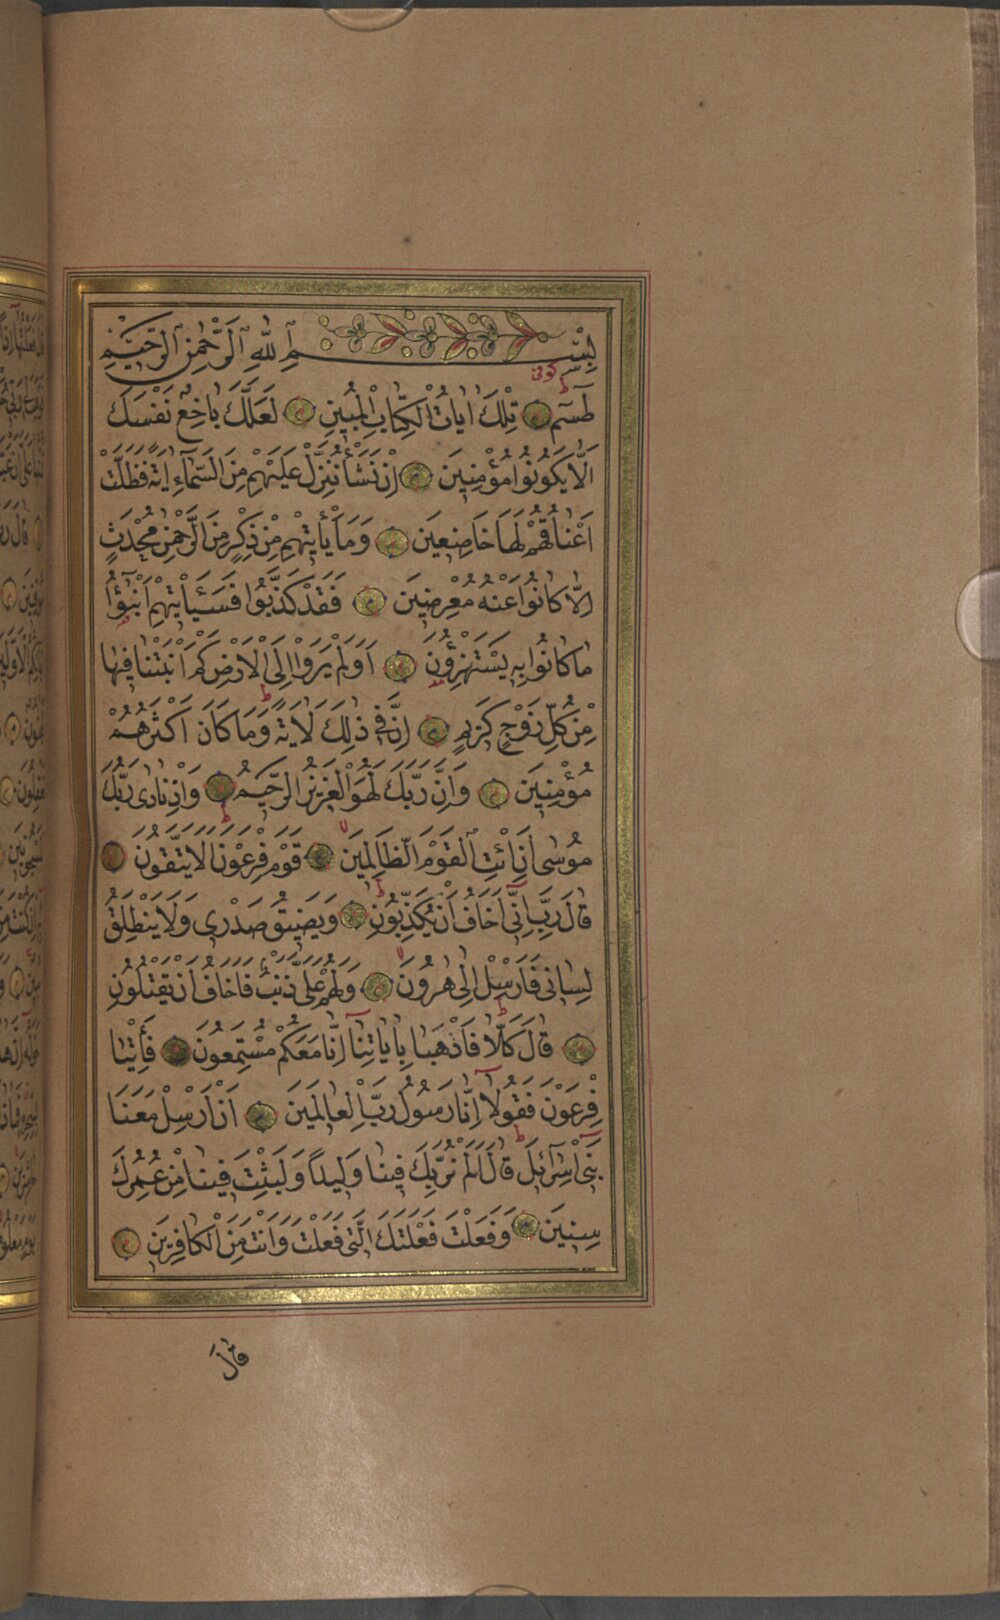 بِسْمِ اللهِ الرَّحْمٰنِ الرَّحِيمِ
كوفى
طٰسٓمٓ تِلْكَ اٰيَاتُ الْكِتَابِ الْمُبِينِ لَعَلَّكَ بَاخِعٌ نَفْسَكَ
اَلَّا يَكُونُوا مُؤْمِنِينَ اِنْ نَشَأْ نُنَزِّلْ عَلَيْهِمْ مِنَ السَّمَآءِ اٰيَةً فَظَلَّتْ
اَعْنَاقُهُمْ لَهَا خَاضِعِينَ وَمَا يَأْتِيهِمْ مِنْ ذِكْرٍ مِنَ الرَّحْمٰنِ مُحْدَثٍ
اِلَّا كَانُوا عَنْهُ مُعْرِضِينَ فَقَدْ كَذَّبُوا فَسَيَأْتِيهِمْ اَنْبٰٓؤُا
مَا كَانُوا بِهِ يَسْتَهْزِؤُنَ اَوَلَمْ يَرَوْا اِلَى الْاَرْضِ كَمْ اَنْبَتْنَا فِيهَا
مِنْ كُلِّ زَوْجٍ كَرِيمٍ اِنَّ فِي ذٰلِكَ لَاٰيَةً وَمَا كَانَ اَكْثَرُهُمْ
مُؤْمِنِينَ وَاِنَّ رَبَّكَ لَهُوَ الْعَزِيزُ الرَّحِيمُ وَاِذْ نَادٰى رَبُّكَ
مُوسٰى اَنِ ائْتِ الْقَوْمَ الظَّالِمِينَ قَوْمَ فِرْعَوْنَ اَلَا يَتَّقُونَ
قَالَ رَبِّ اِنِّىٓ اَخَافُ اَنْ يُكَذِّبُونِ وَيَضِيقُ صَدْرِى وَلَا يَنْطَلِقُ
لِسَانِى فَاَرْسِلْ اِلٰى هٰرُونَ وَلَهُمْ عَلَىَّ ذَنْبٌ فَاَخَافُ اَنْ يَقْتُلُونِ
قَالَ كَلَّا فَاذْهَبَا بِاٰيَاتِنَٓا اِنَّا مَعَكُمْ مُسْتَمِعُونَ فَأْتِيَا
فِرْعَوْنَ فَقُولَٓا اِنَّا رَسُولُ رَبِّ الْعَالَمِينَ اَنْ اَرْسِلْ مَعَنَا
بَنِىٓ اِسْرَٓائِلَ قَالَ اَلَمْ نُرَبِّكَ فِينَا وَلِيدًا وَلَبِثْتَ فِينَا مِنْ عُمُرِكَ
سِنِينَ وَفَعَلْتَ فَعْلَتَكَ الَّتِى فَعَلْتَ وَاَنْتَ مِنَ الْكَافِرِينَ
قَالَ